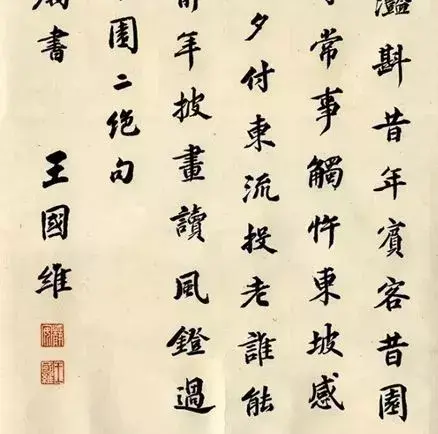 灩斟昔年賓客昔園
常事觸忤東坡感
夕付東流投老誰能
年披畫讀風鐙過
園二絕句
書 王國維